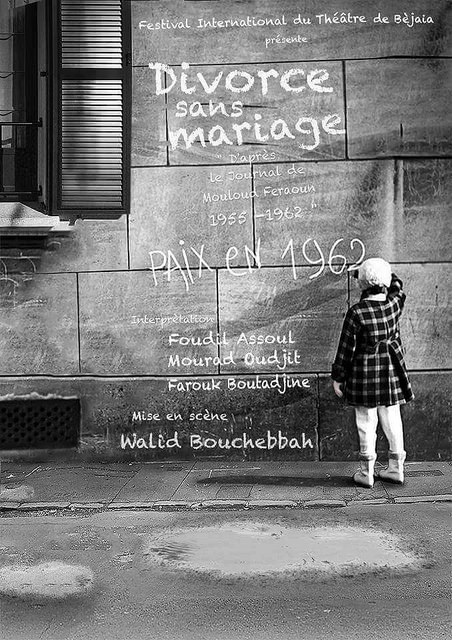 Festival International du Théâtre de Bèjaia
présente
Divorce
sans
mariage
"D'après
le Journal de
Mouloud Feraoun
1955 -1962 "
PAIX EN 1962
Interprétation
Foudil Assoul
Mourad Oudjit
Farouk Boutadjine
Mise en scène
Walid Bouchebbah